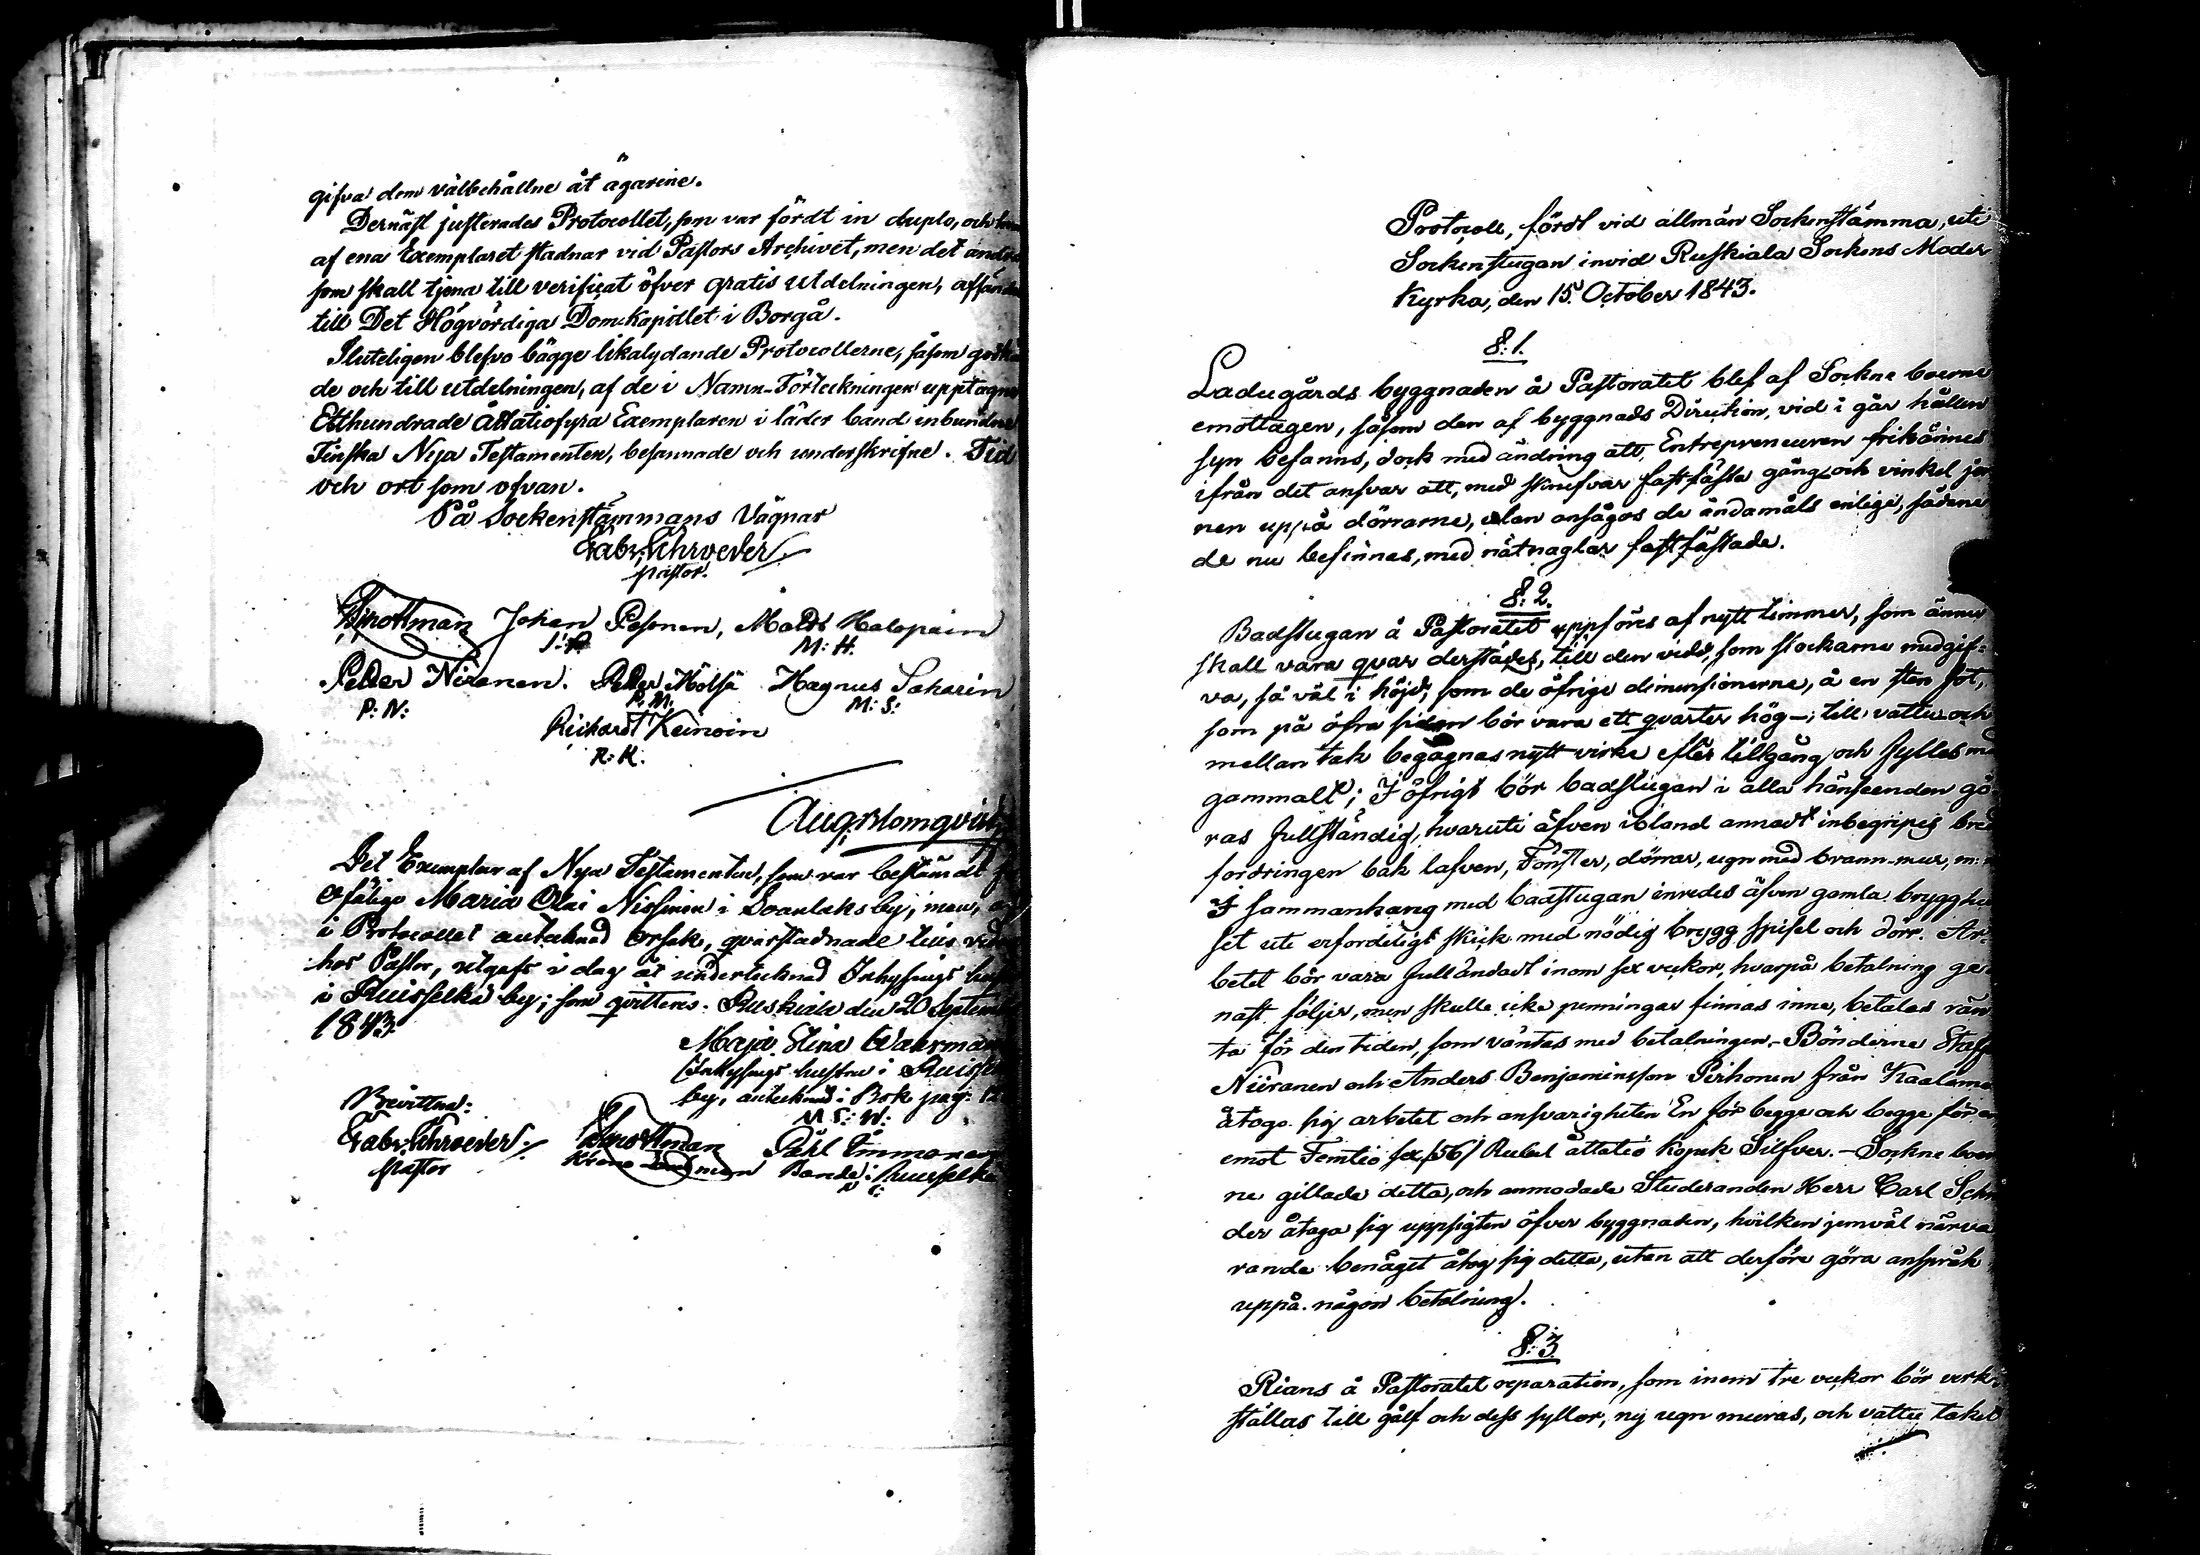 gifva dem välbehållne åt ägarene.
Dernäst justerades Protocollet, som var fördt in duplo, och
af ena Exemplaret stadnar vid Pastors Archivet, men det andra
som skall tjena till verificat öfver gratis utdelningen, afsändes
till Det Högvördiga DomKapitlet i Borgå.
Sluteligen blefvo bägge likalydande Protocollerne, såsom godkän
de och till utdelningen, af de i Namn-Förteckningen upptagne
Etthundrade Attatiofyra Exemplaren i läder band inbundne
Finska Nya Testamenten, besannade och underskrifne. Tid
och ort som ofvan.
På Sockenstämmans Vägnar
Gabr. Schroeder
pastor.
Johan Pesonen, Matts Halopain
J: P. M: H.
Petter Niranen. Petter Mölsä Magnus Saharin
P: N: P: M. M: S:
Richard Keinoin
R: K.
Aug. Blomqvist
Det Exemplar af Nya Testamentet, som var bestämdt
Ofälige Maria Olai Nissinen i Soanlaks by, men, af
i Protocollet antecknad orsak, qvarstadnade
hos Pastor, utgafs i dag åt undertecknad Inhysings
i Ruisselkä by; som qvitteras. Ruskiala den 20 Septem
1843.
Maja Stina Wahrman
Inhysings hustru i Ruissel
by, antecknad i Bok pag: 12
M: S: W:
Bevittna:
Gabr. Schroeder. Påhl Immonen
Pastor Länsman Bonde i Ruisselkä
Protocoll, fördt vid allmän Sockenstämma, uti
Sockenstugan invid Ruskiala Sockens Moder
Kyrka, den 15 October 1843.
§: 1.
Ladugårds byggnaden å Pastoratet blef af Sockne boerne
emottagen, såsom den af byggnads Direction, vid i går hållen
syn befanns, dock med ändring att, Entrepreneuren frikännes
ifrån det ansvar att, med skrufvar fastfästa gång och vinkel jer
nen uppå dörrarne, utan ansågos de ändamåls enlige, sådene
de nu befinnas, med nätnaglar fastfästade.
§: 2.
Badstugan å Pastoratet uppföres af nytt timmer, som ännu
skall vara qvar derstädes, till den vidd, som stockarne medgif-
va, så väl i höjd, som de öfrige dimensionerne, å en sten fot,
som på öfra sidan bör vara ett qvarter hög –; till vattu och
mellan tak begagnas nytt virke efter tillgång och fylles med
gammalt; I öfrigt bör badstugan i alla hänseenden gö
ras fullständig, hvaruti äfven ibland annadt inbegripes bräd
fordringen bak lafven, Fönster, dörrar, ugn med brann-mur, m: m
I sammanhang med badstugan inredes äfven gamla brygghu
set uti erforderligt skick med nödig brygg spisel och dörr. Ar-
betet bör vara fulländadt inom sex veckor, hvarpå betalning ge
nast följer, men skulle icke penningar finnas inne, betalas rän
ta för den tiden, som väntas med betalningen. – Bönderne Staff
Niiranen och Anders Benjaminsson Pirhonen från Kaalamo
åtogo sig arbetet och ansvarigheten En för begge och begge för en
emot Femtio sex /56/ Rubel åttatio kopek Silfver. – Sockne boer
ne gillade detta, och anmodade Studeranden Herr Carl Schrö
der åtaga sig uppsigten öfver byggnaden, hvilken jemväl närva
rande benäget åtog sig detta, utan att derföre göra anspråk
uppå någon betalning.
§: 3.
Rians å Pastoratet reparation, som inom tre veckor bör verk
ställas till gålf och dess syllor, ny ugn muras, och vattu taket